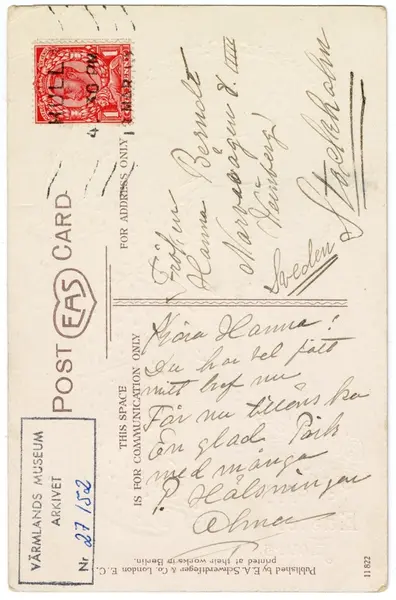 POST EAS CARD
FOR ADDRESS ONLY
HULL
Fröken
Hanna Berndt
Narvavägen 8. IIII
(Weinberg)
Stockholm
Sweden
THIS SPACE
IS FOR COMMUNICATION ONLY
Kära Hanna!
Du har väl fått
mitt bref nu
Får nu tillönska
En glad Påsk
med många
Hälsningar
Published by E.A. Schwerdtfeger & Co. London E. C.
printed at their works in Berlin.
11822
VÄRMLANDS MUSEUM
ARKIVET
Nr 27/52